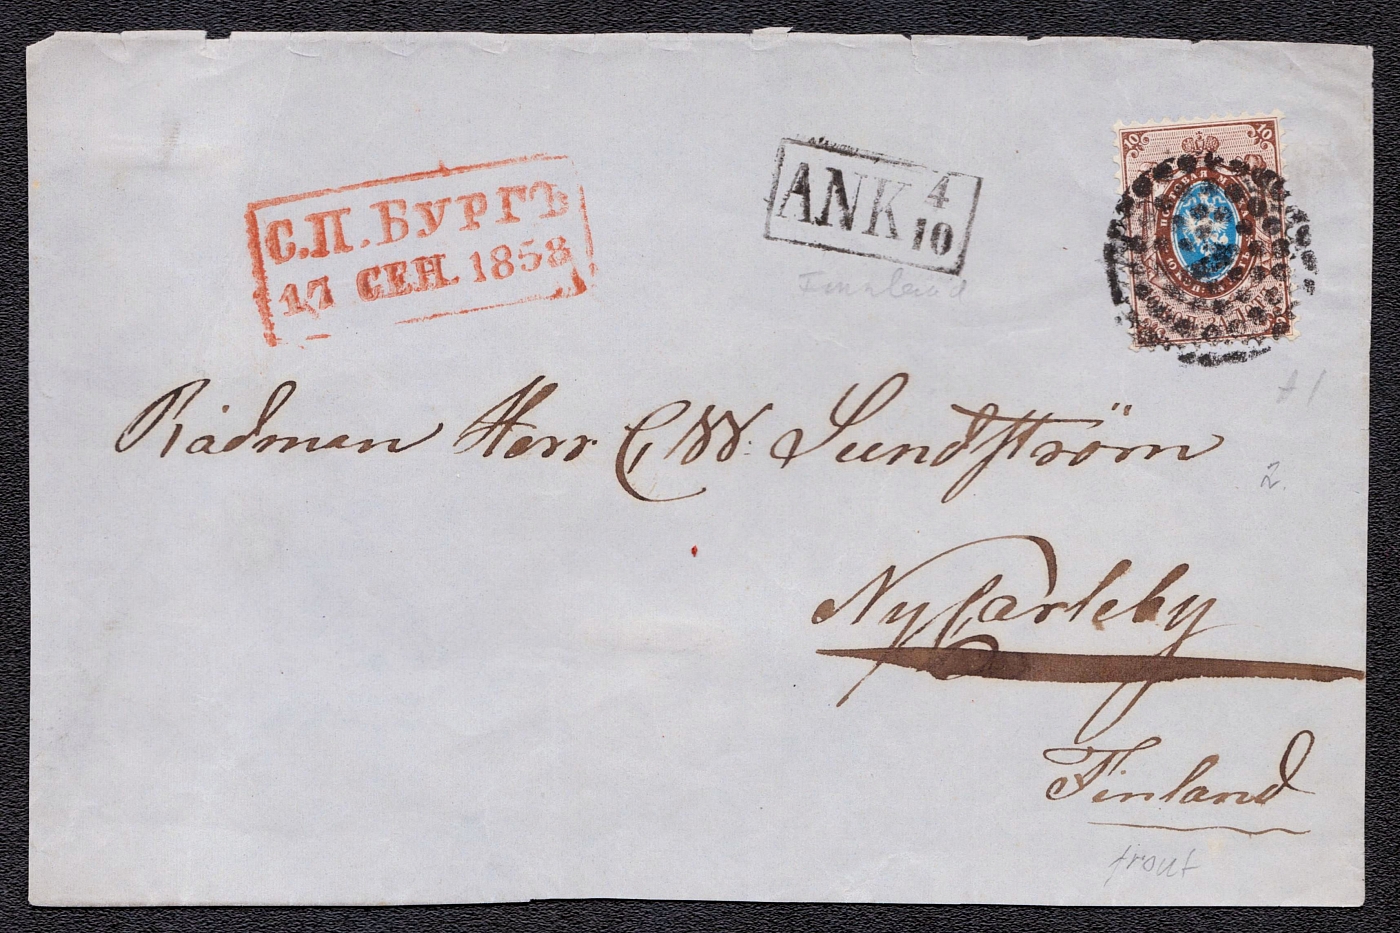 С.П.БУРГЪ
17 СЕН. 1858
ANK 4
10
Finnland
10 10
Rådman Herr C, W. Sundström
2.
Ny Carleby
Finland
front